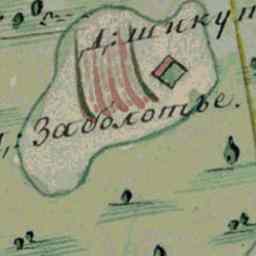 д: шикуп
д: Заболотье.